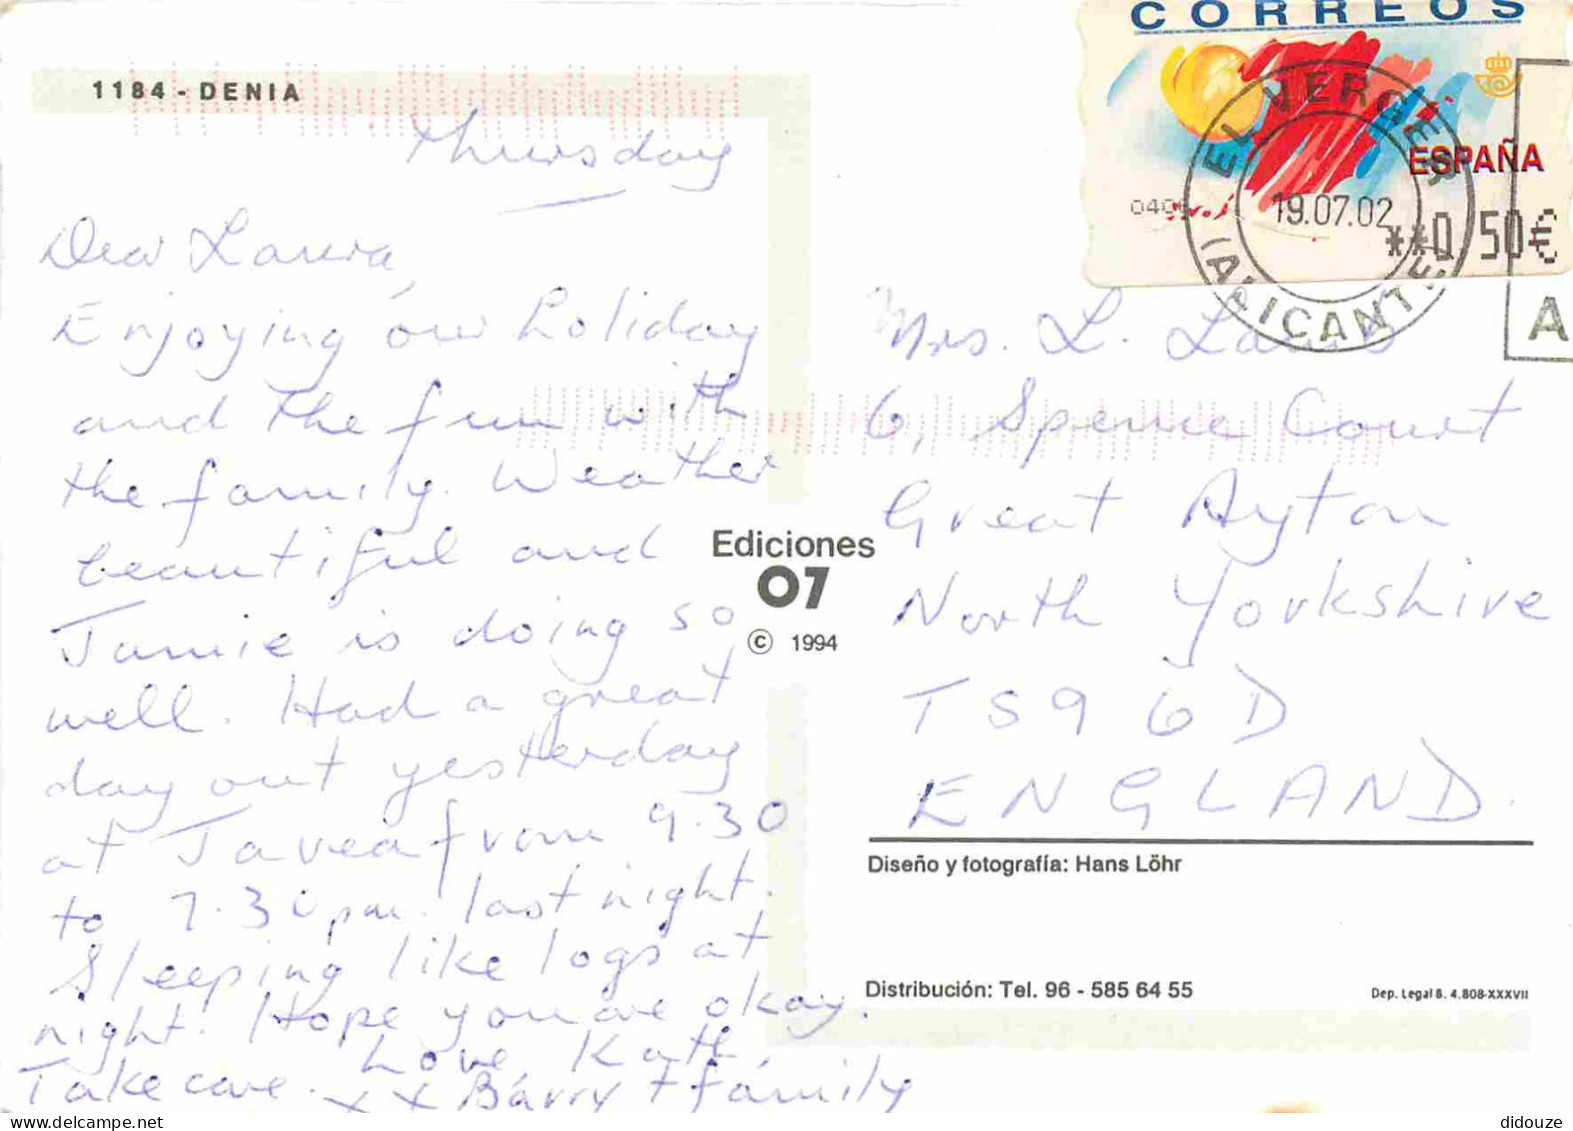 1184 - DENIA
Thursday
Dear Laura,
Enjoying our holiday
and the fun with
the family. Weather
beautiful and
Jamie is doing so
well. Had a great
day out yesterday
at Javea from 9.30
to 7.30pm. last night.
Sleeping like logs at
night! Hope you are okay.
Take care. Love Kath
x x Barry + family
Ediciones
07
© 1994
CORREOS
ESPAÑA
**0,50€
EL VERGER
19.07.02
(ALICANTE)
A
Mrs. L.
6, Spence Court
Great Ayton
North Yorkshire
TS9 6D
ENGLAND
Diseño y fotografía: Hans Löhr
Distribución: Tel. 96 - 585 64 55
Dep. Legal B. 4.808-XXXVII
didouze